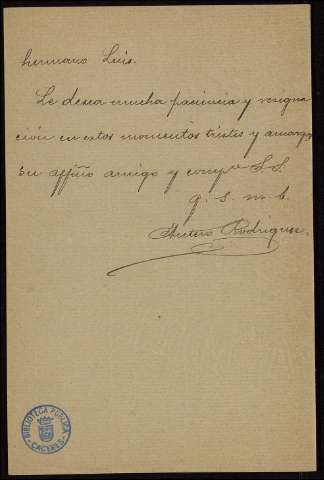 hermano Luis.
Le desea mucha paciencia y resigna
ción en estos momentos tristes y amargos
su affmo amigo y compº S.S.
q. s. m. b.
Antero Rodriguez
BIBLIOTECA PÚBLICA
CÁCERES